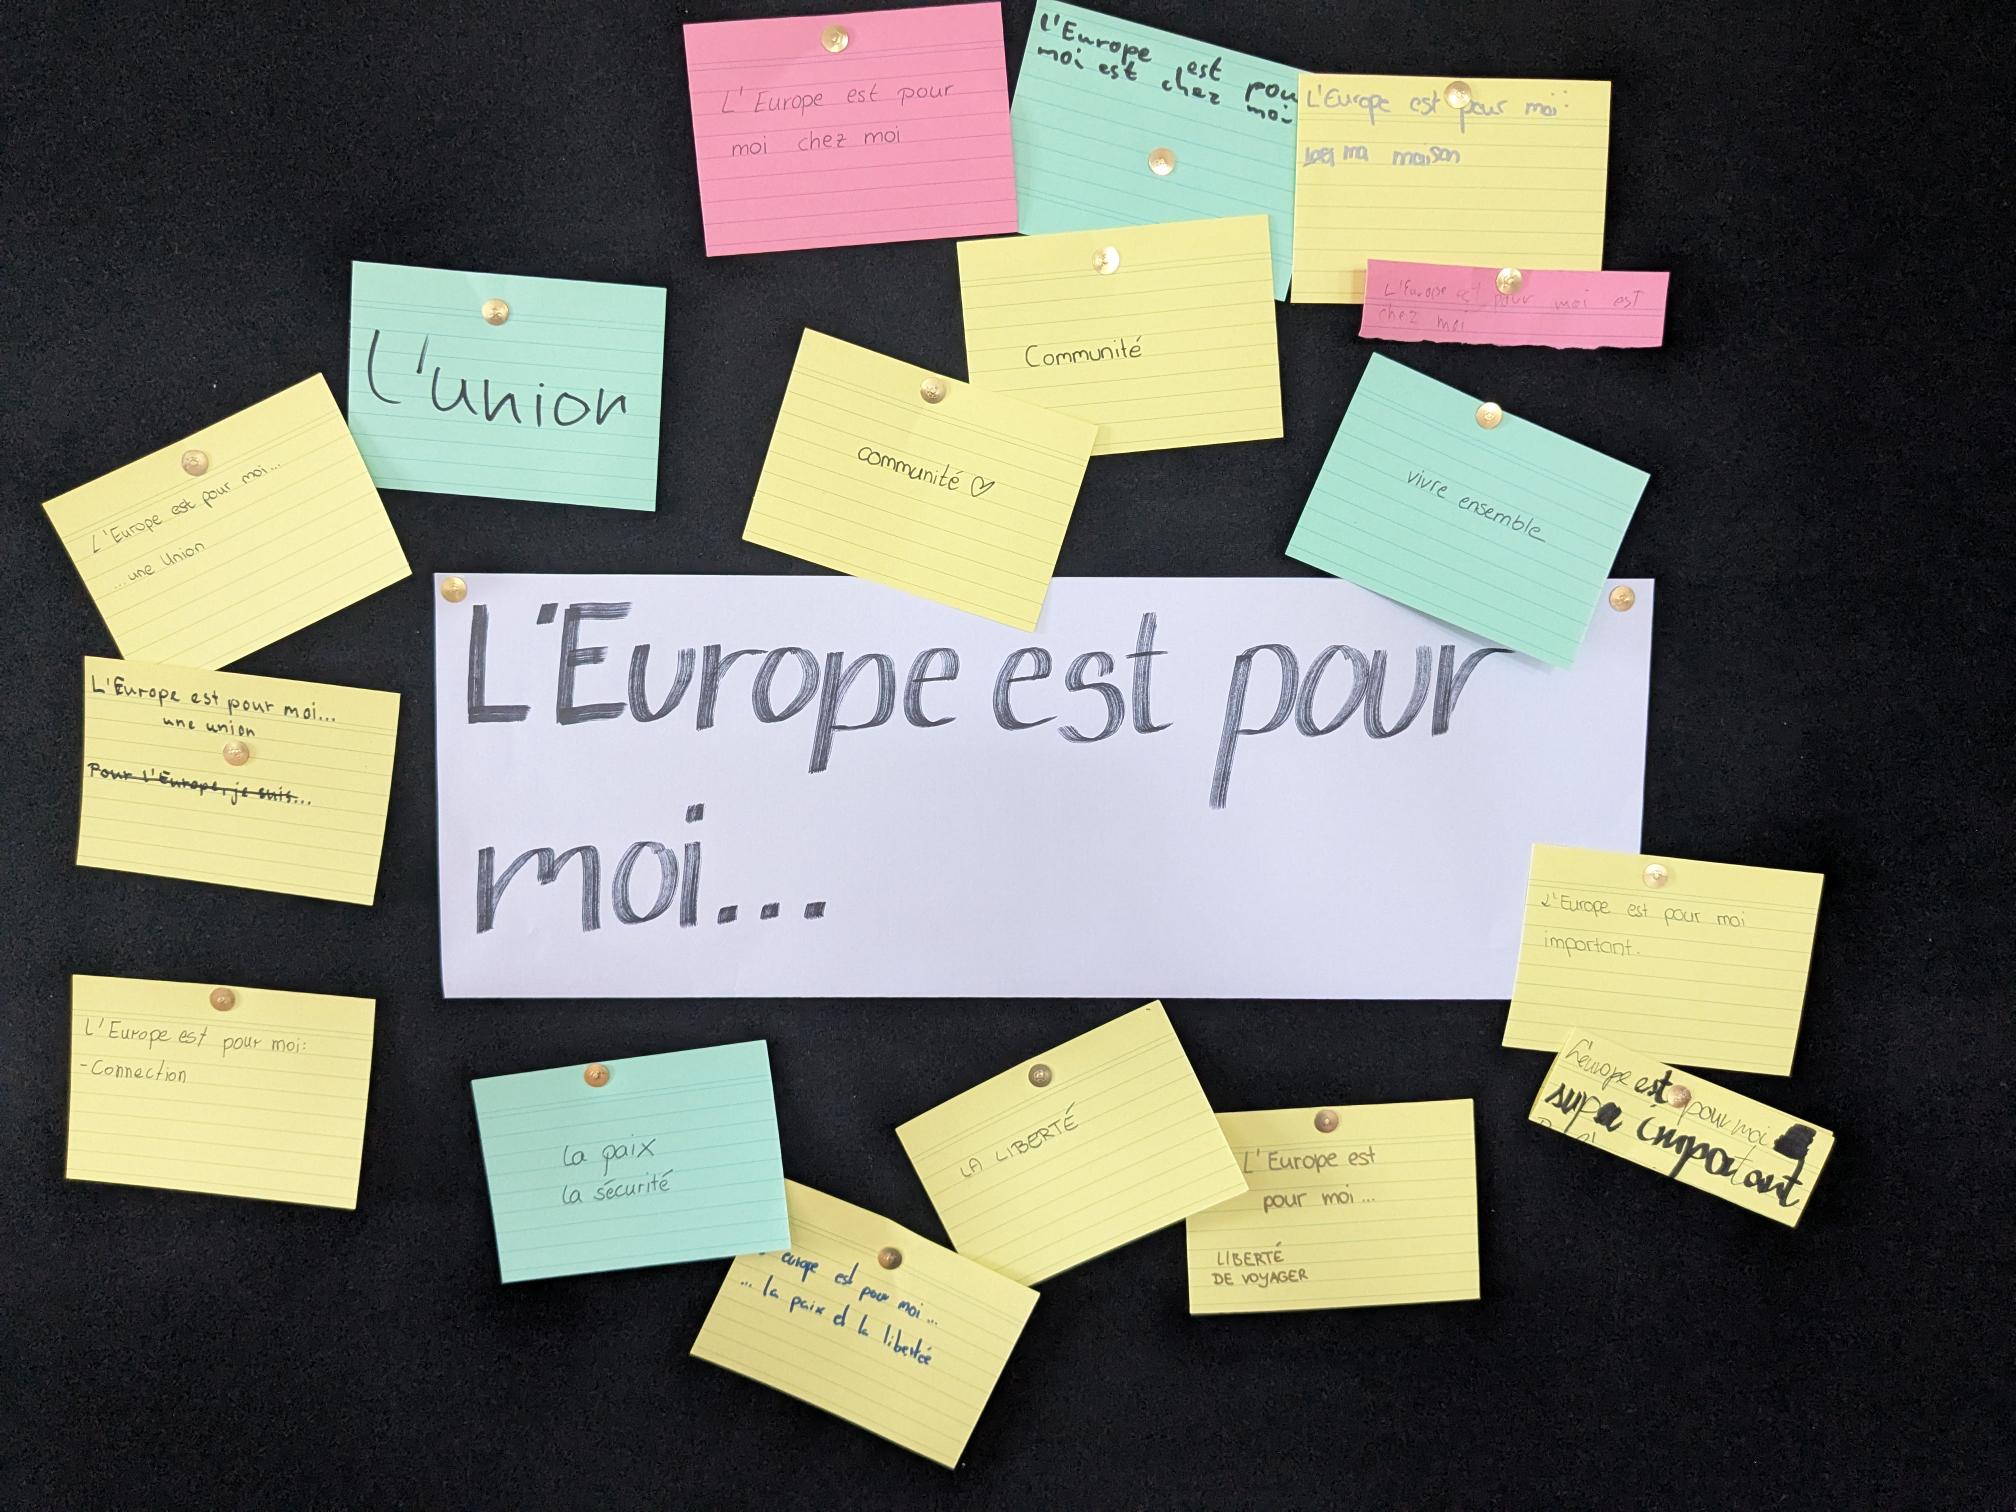 L'Europe est pour
moi chez moi
L'Europe est pou
moi est chez moi
L'Europe est pour moi:
ma maison
L'Europe est pour moi est
chez moi
Communité
L'union
communité ♡
vivre ensemble
L'Europe est pour moi...
...une Union
L'Europe est pour
moi...
L'Europe est pour moi...
une union
Pour l'Europe, je suis...
L'Europe est pour moi
important.
L'Europe est pour moi:
-Connection
L'europe est pour moi
supa important
la paix
la sécurité
LA LIBERTÉ
L'Europe est
pour moi...
LIBERTÉ
DE VOYAGER
europe est pour moi...
... la paix et la libertée